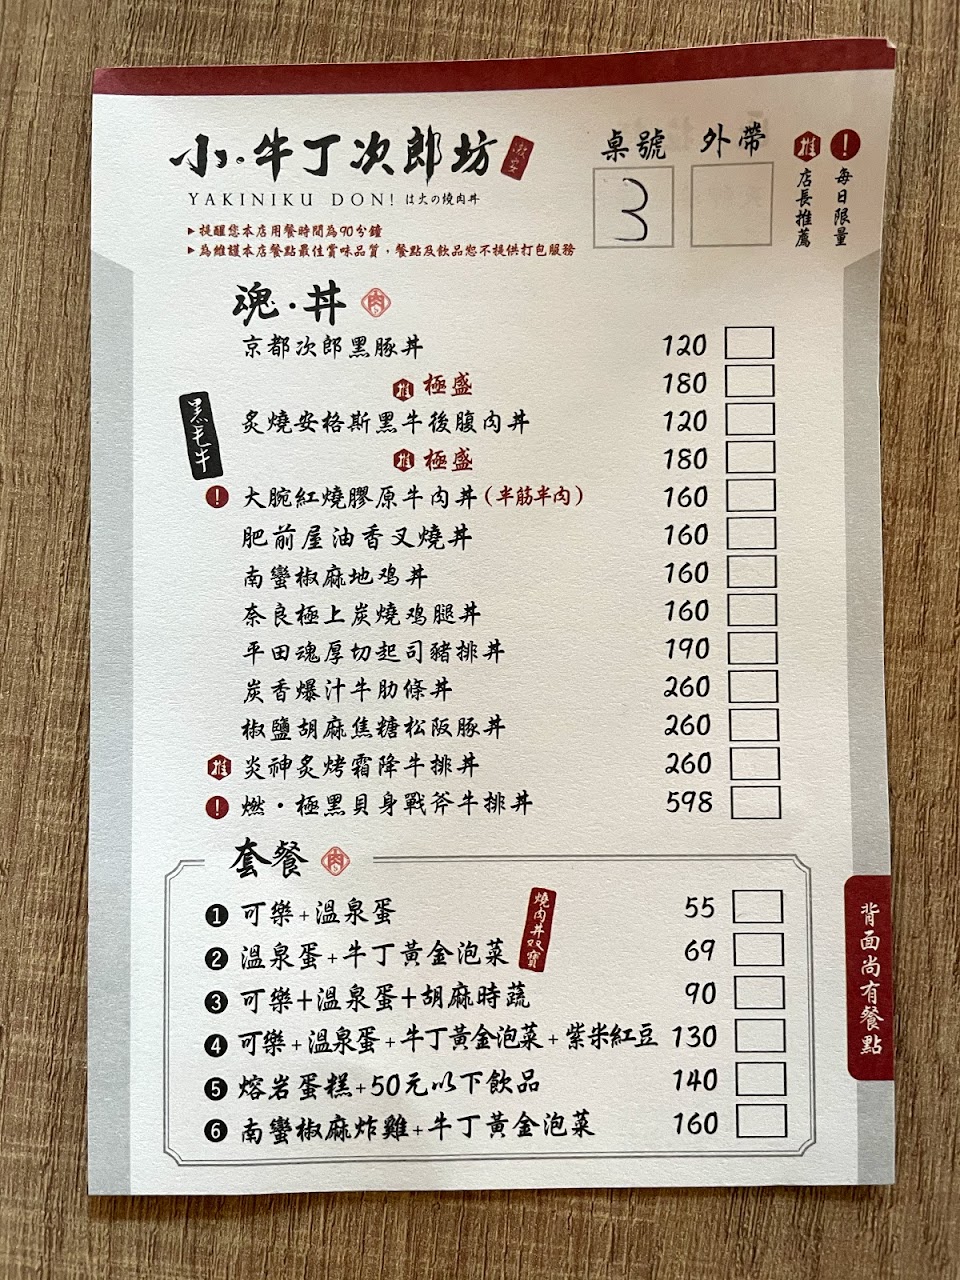 小·牛丁次郎坊
YAKINIKU DON! は大の燒肉丼
▶提醒您本店用餐時間為90分鐘
▶為維護本店餐點最佳賞味品質，餐點及飲品恕不提供打包服務
桌號 外帶
3
推 店長推薦
! 每日限量
魂·丼 肉
京都次郎黑豚丼 120
推 極盛 180
黑毛牛
炙燒安格斯黑牛後腹肉丼 120
推 極盛 180
! 大腕紅燒膠原牛肉丼(半筋半肉) 160
肥前屋油香叉燒丼 160
南蠻椒麻地鸡丼 160
奈良極上炭燒鸡腿丼 160
平田魂厚切起司豬排丼 190
炭香爆汁牛肋條丼 260
椒鹽胡麻焦糖松阪豚丼 260
推 炎神炙烤霜降牛排丼 260
! 燃·極黑貝身戰斧牛排丼 598
套餐 肉
❶ 可樂+溫泉蛋 55
燒肉丼双寶
❷ 溫泉蛋+牛丁黃金泡菜 69
❸ 可樂+溫泉蛋+胡麻時蔬 90
❹ 可樂+溫泉蛋+牛丁黃金泡菜+紫米紅豆 130
❺ 熔岩蛋糕+50元以下飲品 140
❻ 南蠻椒麻炸雞+牛丁黃金泡菜 160
背面尚有餐點